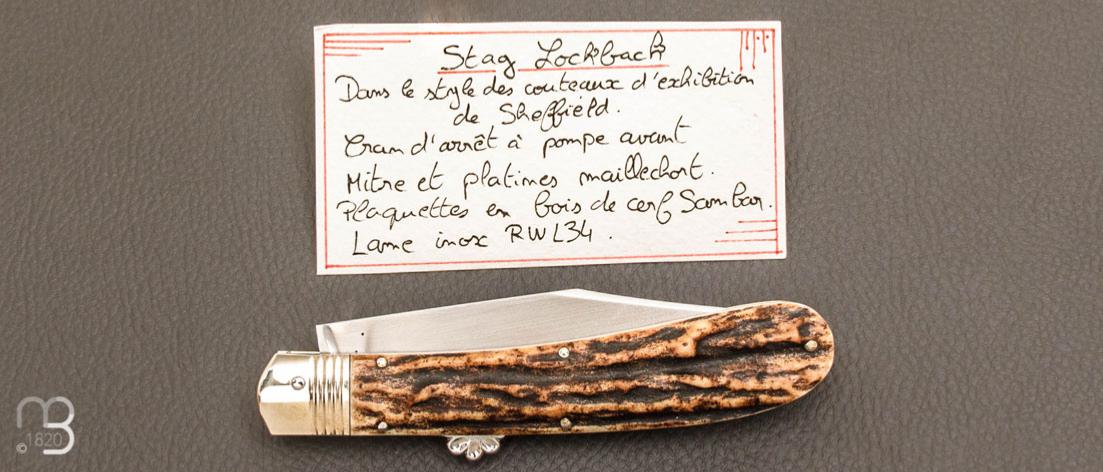 Stag Lockback
Dans le style des couteaux d'exhibition
de Sheffield.
Cran d'arrêt à pompe avant
Mitre et platines maillechort.
Plaquettes en bois de cerf Sambar.
Lame inox RWL34.
©1820